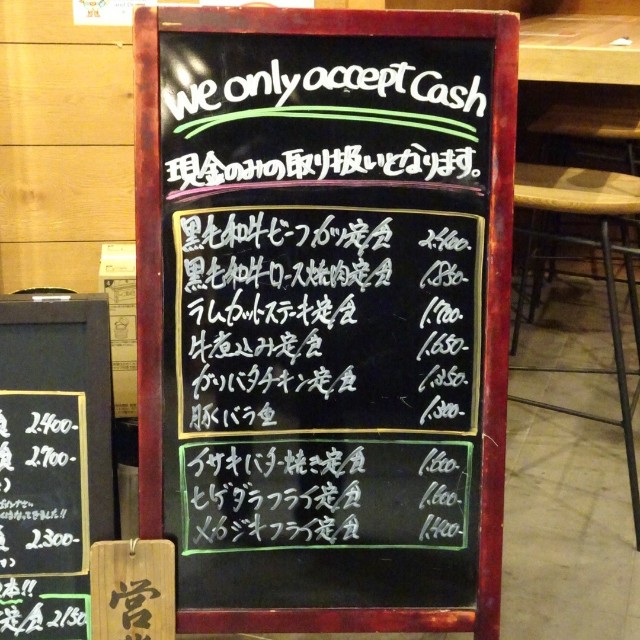 We only accept Cash
現金のみの取り扱いとなります。
黒毛和牛ビーフカツ定食 2.400-
黒毛和牛ロース焼肉定食 1.850-
ラムカットステーキ定食 1.700-
牛煮込み定食 1.650-
ガリバタチキン定食 1.350-
豚バラ 1.300-
イサキバター焼き定食 1.600-
ヒゲダラフライ定食 1.600-
メカジキフライ定食 1.400-
食 2.400-
食 2.700-
2.300-
定食 2150
営